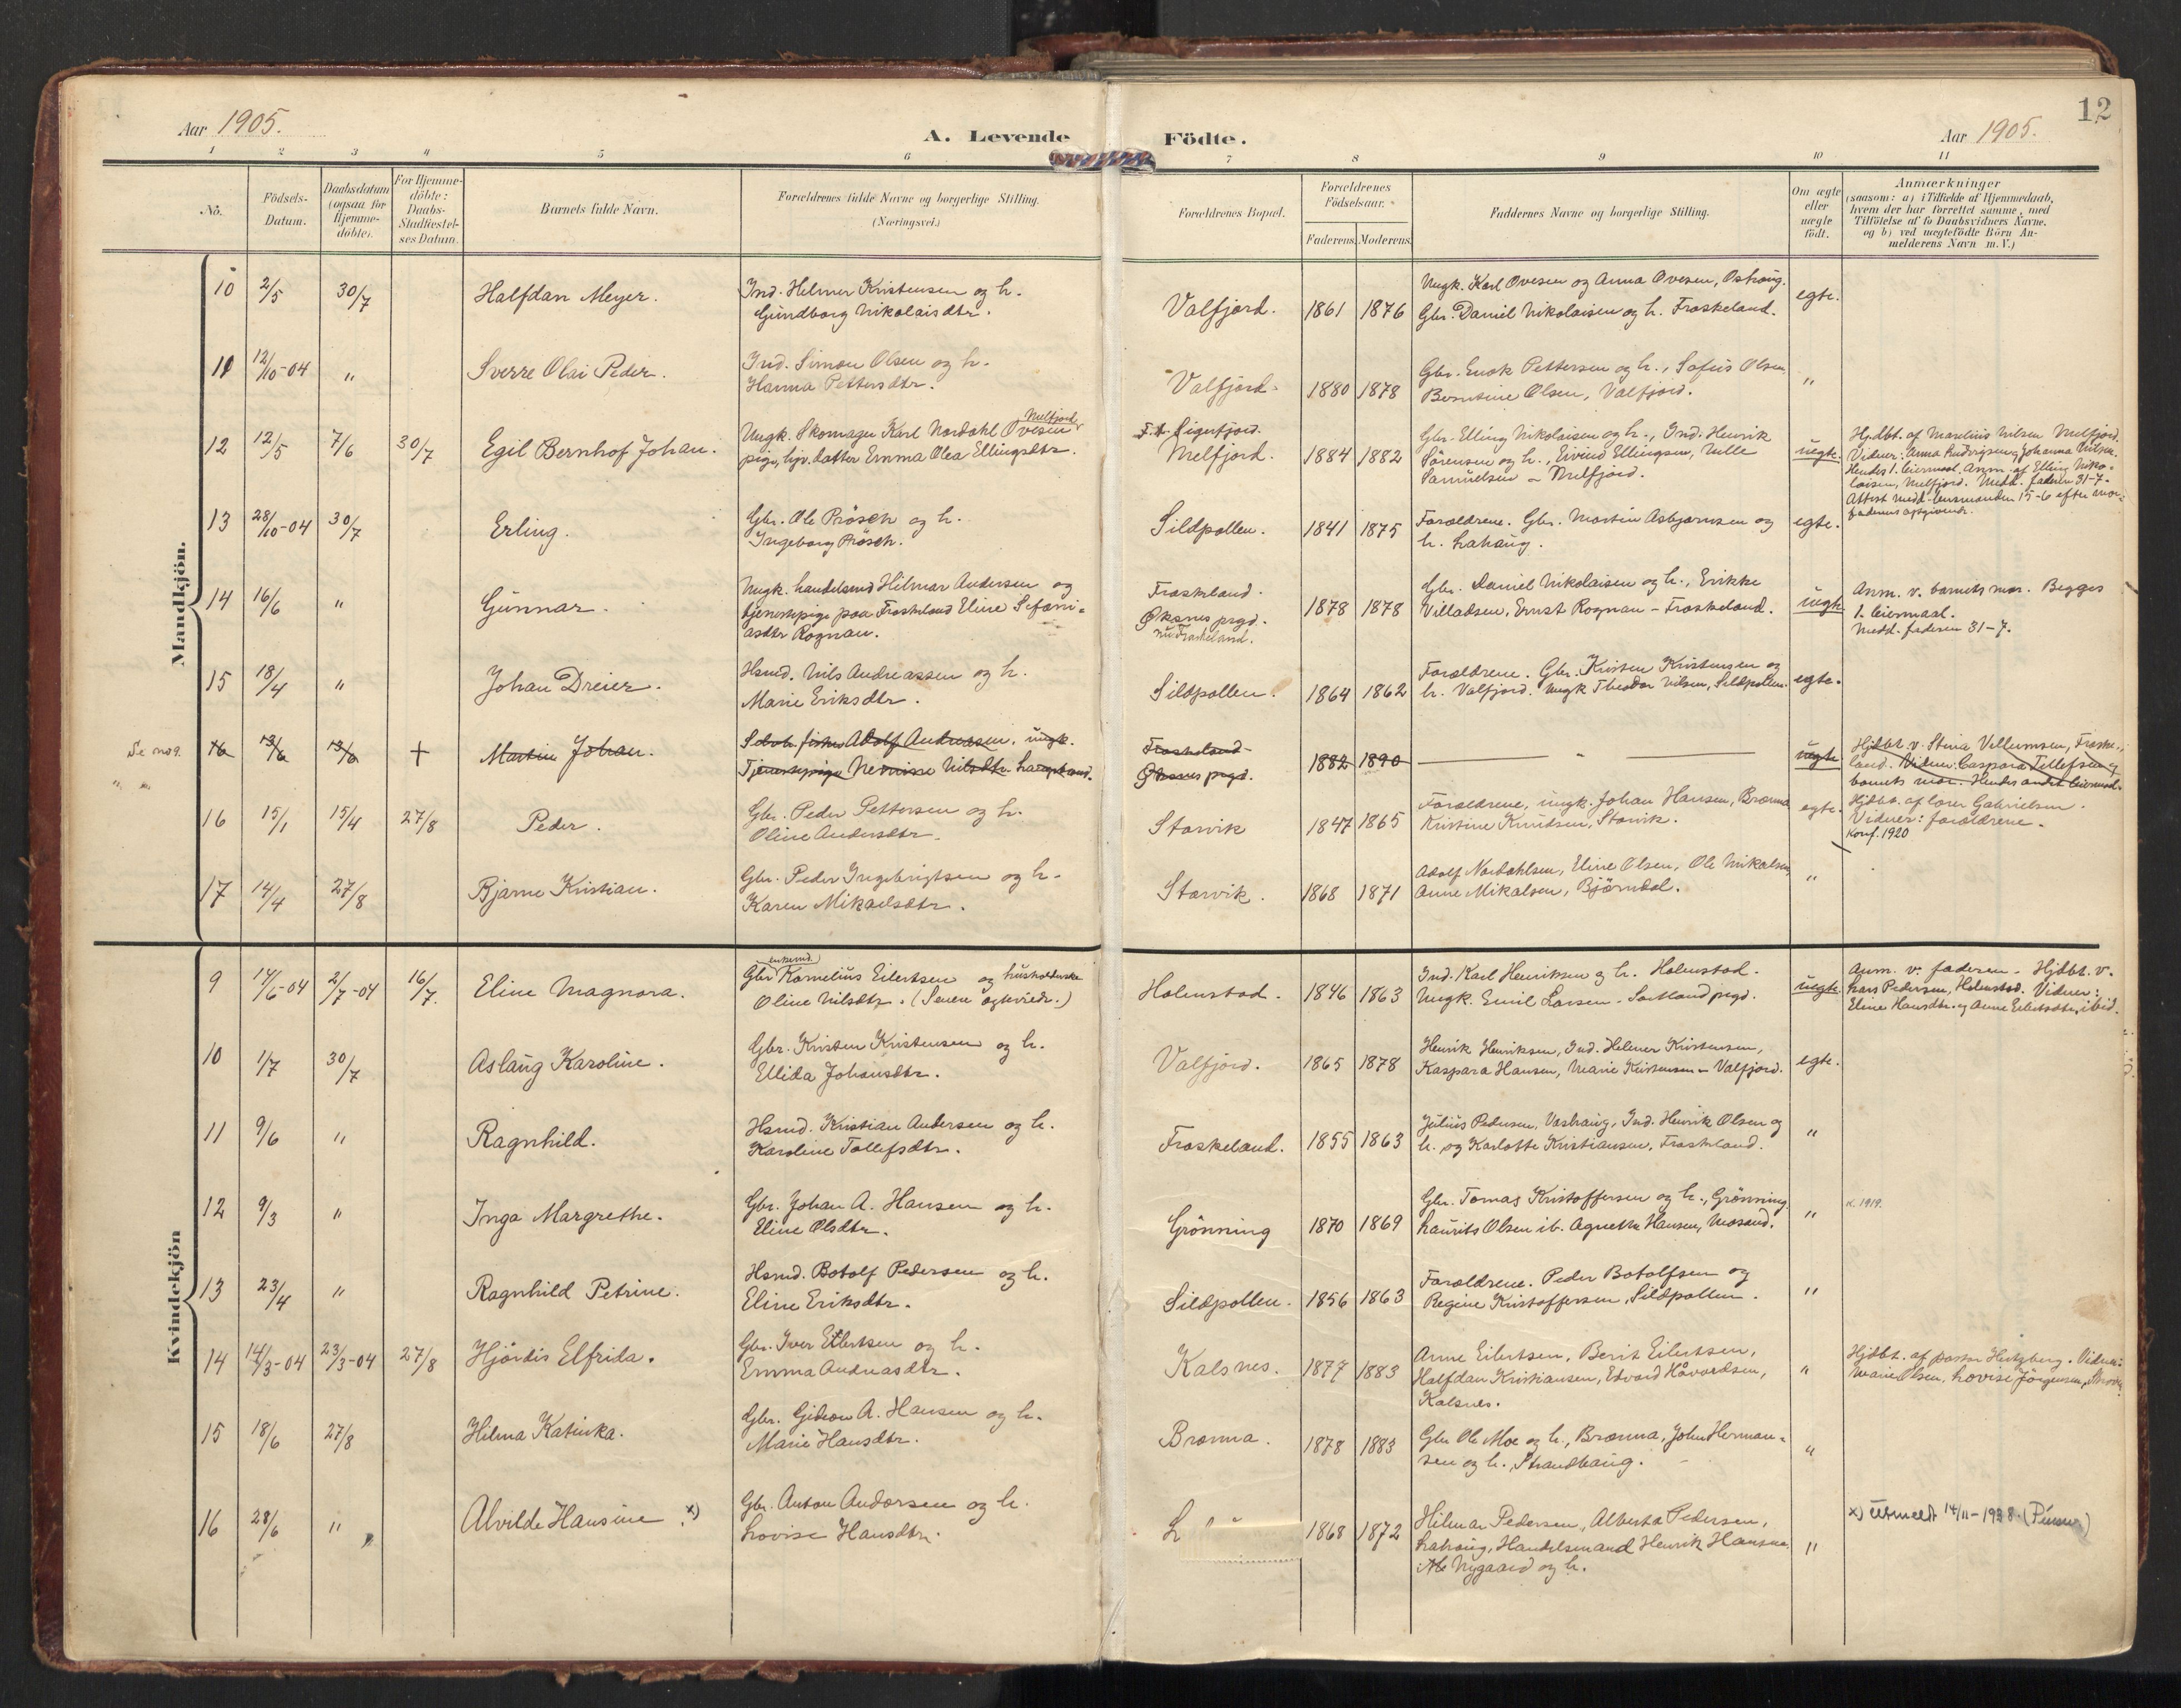 12
Aar 1905.
A. Levende Födte.
Aar 1905.
1 2 3 4 5 6 7 8 9 10 11
No.
Födsels-
Datum.
Daabsdatum
(ogsaa for
Hjemme-
döbte).
For Hjemme-
döbte:
Daabs-
Stadfæstel-
ses Datum.
Barnets fulde Navn.
Forældrenes fulde Navne og borgerlige Stilling.
(Næringsvei.)
Forældrenes Bopæl.
Forældrenes
Födselsaar.
Faderens. Moderens.
Faddernes Navne og borgerlige Stilling.
Om ægte
eller
uægte
født.
Anmærkninger
(saasom: a) i Tilfælde af Hjemmedaab,
hvem der har forrettet samme, med
Tilföielse af to Daabsvidners Navne.
og b) ved uægtefödte Börn An-
melderens Navn m. V.)
Mandkjön.
10 2/5 30/7 Halfdan Meyer.
Ind. Helmer Kristensen og h.
Gundborg Nikolaisdtr.
Valfjord. 1861 1876
Ungk. Karl Ovesen og Anna Ovesen, Oshaug.
Gbr. Daniel Nikolaisen og h. Fraskeland.
egte.
11 12/10-04 " Sverre Olai Peder.
Ind. Simon Olsen og h.
Hanna Pettersdtr.
Valfjord. 1880 1878
Gbr. Enok Pettersen og h., Sofus Olsen
Berntine Olsen, Valfjord.
"
12 12/5 7/6 30/7 Egil Bernhof Johan.
Melfjord
Ungk. Skomager Karl Nordahl Ovesen
pige, hjv. datter Emma Olea Ellingsdtr.
F. A. Sigerfjord.
Melfjord. 1884 1882
Gbr. Elling Nikolaisen og h., Ind. Henrik
Sörensen og h., Eivind Ellingsen, Nille
Samuelsen - Melfjord.
uegte.
Hjdbt. af Marelius Nilsen Melfjord.
Vidner: Anna Ludvigsen og Johanna Nilsen.
Hendes 1. leiermaal. Anm. af Elling Niko-
laisen, Melfjord. Medd. faderen 31-7-
Attest medd. lensmanden 15-6 efter mor-
faderens opgivende.
13 28/10-04 30/7 Erling.
Gbr. Ole Prösch og h.
Ingeborg Prösch.
Sildpollen. 1841 1875
Forældrene. Gbr. Martin Asbjørnsen og
h. Lahaug.
egte.
14 16/6 " Gunnar.
Ungk. handelsmd Hilmar Andersen og
tjenestepige paa Fraskeland Eline Sefani-
asdtr Rognan.
Fraskeland.
Øksnes prgd.
nu: Fraskeland.
1878 1878
Gbr. Daniel Nikolaisen og h., Erikke
Villadsen, Ernst Rognan - Fraskeland.
uegte
Anm. v. barnets mor. Begges
1. leiermaal.
Medd. faderen 31-7.
15 18/4 " Johan Dreier.
Hsmd. Nils Andreassen og h.
Marie Eriksdtr.
Sildpollen. 1864 1862
Forældrene. Gbr. Kristen Kristensen og
h. Valfjord. Ungk Theodor Nilsen, Sildpollen.
egte.
Se no 9.
16 13/6 13/6 + Martin Johan.
Selveh. fisker Adolf Andreasen, ungk.
Tjenestepige Nernisse Nilsdtr.
Fraskeland
Øksnes prgd.
1882 1890
uegte
Hjdbt. v. Stina Vellumsen, Fraske-
land. Vidner: Caspara Tellefsen og
barnets mor. Hendes andet leiermaal.
" "
16 15/1 15/4 27/8 Peder.
Gbr. Peder Pettersen og h.
Oline Andersdtr.
Storvik 1847 1865
Forældrene, ungk. Johan Hansen, Brænna
Kristine Knudsen, Storvik.
egte.
Hjdbt. af lærer Gabrielsen.
Vidner: forældrene.
Konf. 1920
17 14/4 27/8 Bjarne Kristian.
Gbr. Peder Ingebrigtsen og h.
Karen Mikaelsdtr.
Storvik. 1868 1871
Adolf Nordahlsen, Eline Olsen, Ole Mikalsen,
Anne Mikalsen, Björndal.
"
Kvindekjön
9 14/6-04 2/7-04 16/7. Eline Magnora.
enkemd.
Gbr Kornelius Eilertsen og husholderske
Oline Nilsdtr. (Senere ægteviede.)
Holmstad. 1846 1863
Ind. Karl Henriksen og h. Holmstad.
Ungk. Emil Larsen. Sortland prgd.
uegte.
Anm. v. faderen. Hjdbt. v.
Lars Pedersen, Holmstad. Vidner:
Eline Hansdtr. og Anne Eilertsdtr, ibid.
10 1/7 30/7 Aslaug Karoline.
Gbr. Kristen Kristensen og h.
Ellida Johansdtr.
Valfjord. 1865 1878
Henrik Henriksen, Ind. Helmer Kristensen,
Kaspara Hansen, Marie Kristensen - Valfjord.
egte.
11 9/6 " Ragnhild.
Hsmd. Kristian Andersen og h.
Karoline Tollefsdtr.
Fraskeland. 1855 1863
Julius Pedersen, Vashaug, Ind. Henrik Olsen og
h. og Karlotte Kristiansen, Fraskeland.
"
12 9/3 " Inga Margrethe.
Gbr. Johan A. Hansen og h.
Eline Olsdtr.
Grönning 1870 1869
Gbr. Tomas Kristoffersen og h., Grönning
Laurits Olsen ib. Agnethe Hansen, Mosand.
"
K. 1919.
13 23/4 " Ragnhild Petrine.
Hsmd. Botolf Pedersen og h.
Eline Eriksdtr.
Sildpollen. 1856 1863
Forældrene. Peder Botolfsen og
Regine Kristoffersen, Sildpollen.
"
14 14/3-04 23/3-04 27/8 Hjördis Elfrida.
Gbr. Iver Eilertsen og h.
Emma Andreasdtr.
Kalsnes. 1877 1883
Anne Eilertsen, Berit Eilertsen,
Halfdan Kristiansen, Edvard Håvardsen,
Kalsnes.
"
Hjdbt. af pastor Hertzberg. Vidner:
Marie Olsen, Lovise Jörgensen,
15 18/6 27/8 Hilma Katinka.
Gbr. Gideon A. Hansen og h.
Marie Hansdtr.
Brænna. 1878 1883
Gbr Ole Moe og h., Brænna, John Herman-
sen og h., Strandhaug.
"
16 28/6 " Alvilde Hansine. x)
Gbr. Anton Andersen og h.
Lovise Hansdtr.
L
1868 1872
Hilmar Pedersen, Alberta Pedersen,
Lahaug, Handelsmand Henrik Hansen
Nygaard og h.
"
x) utmeldt 14/11-1938. (Pinse)